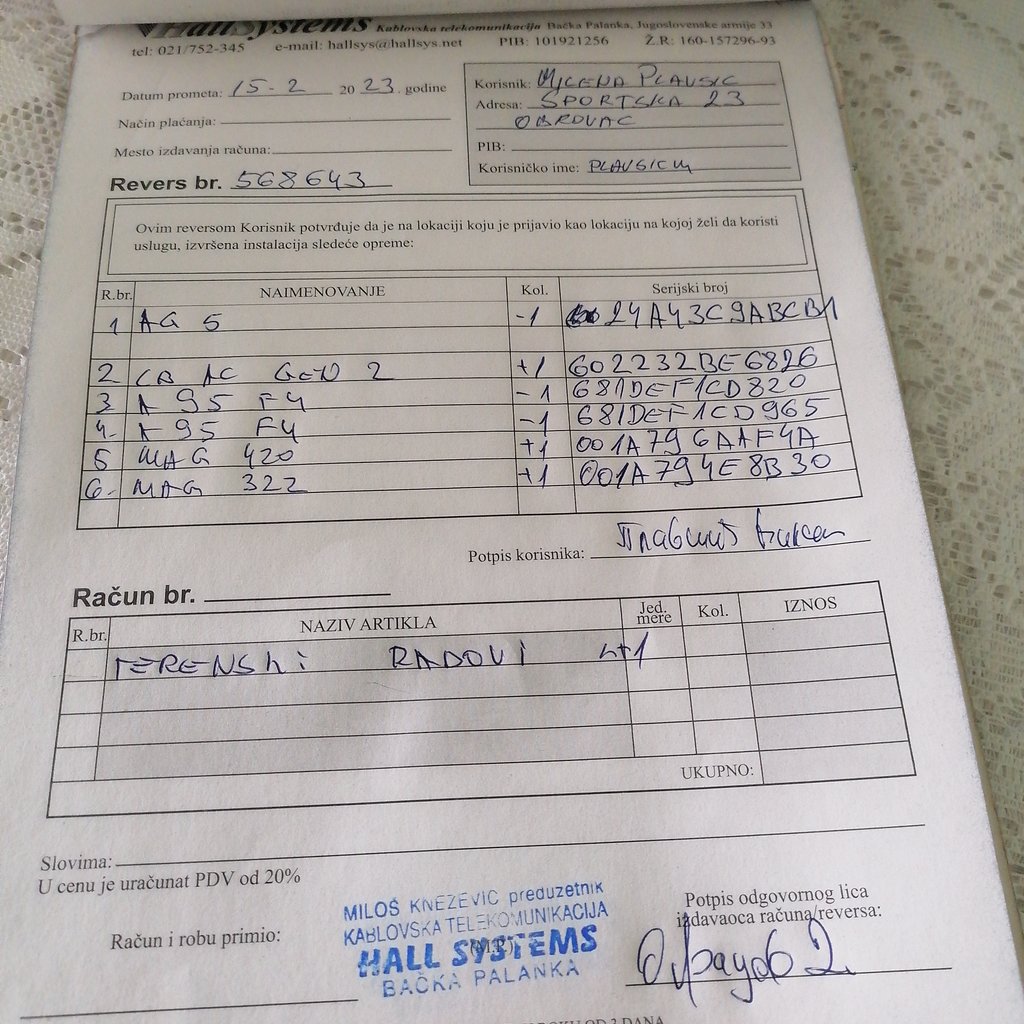 HallSystems Kablovska telekomunikacija Bačka Palanka, Jugoslovenske armije 33
tel: 021/752-345 e-mail: hallsys@hallsys.net PIB: 101921256 Ž.R: 160-157296-93
Datum prometa: 15-2 2023. godine
Način plaćanja:
Mesto izdavanja računa:
Revers br. 568643
Korisnik: MILENA PLAVSIC
Adresa: SPORTSKA 23
OBROVAC
PIB:
Korisničko ime: PLAVSICM
Ovim reversom Korisnik potvrđuje da je na lokaciji koju je prijavio kao lokaciju na kojoj želi da koristi
uslugu, izvršena instalacija sledeće opreme:
R.br. NAIMENOVANJE Kol. Serijski broj
1 AG 5 -1 24A43C9ABCB1
2 LB AC GEN 2 +1 602232BE6826
3 A 95 F4 -1 681DEF1CD820
4. A 95 F4 -1 681DEF1CD965
5 MAG 420 +1 001A796AAF4A
6. MAG 322 +1 001A794E8B30
Potpis korisnika:
Račun br.
R.br. NAZIV ARTIKLA Jed. mere Kol. IZNOS
TERENSKI RADOVI +1
UKUPNO:
Slovima:
U cenu je uračunat PDV od 20%
Račun i robu primio:
MILOŠ KNEŽEVIĆ preduzetnik
KABLOVSKA TELEKOMUNIKACIJA
(M.P.)
HALL SYSTEMS
BAČKA PALANKA
Potpis odgovornog lica
izdavaoca računa/reversa: